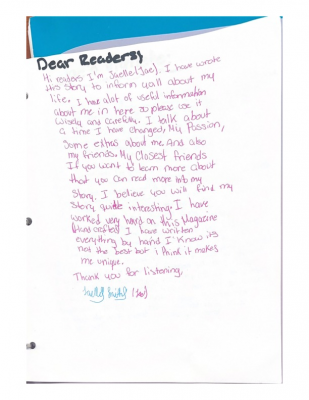 Dear Readers,
Hi readers I'm Jaelle (Jae). I have wrote
this story to inform yall about my
life. I have alot of useful information
about me in here so please use it
wisely and carefully. I talk about
a time I have changed, My Passion,
Some extras about me. And also
my friends. My Closest friends
If you want to learn more about
that you can read more into my
Story. I believe you will find my
Story quite interesting. I have
worked very hard on this Magazine
Hand crafted I have written
everything by hand I know its
not the best but i think it makes
me unique.
Thank you for listening,
(Jae)